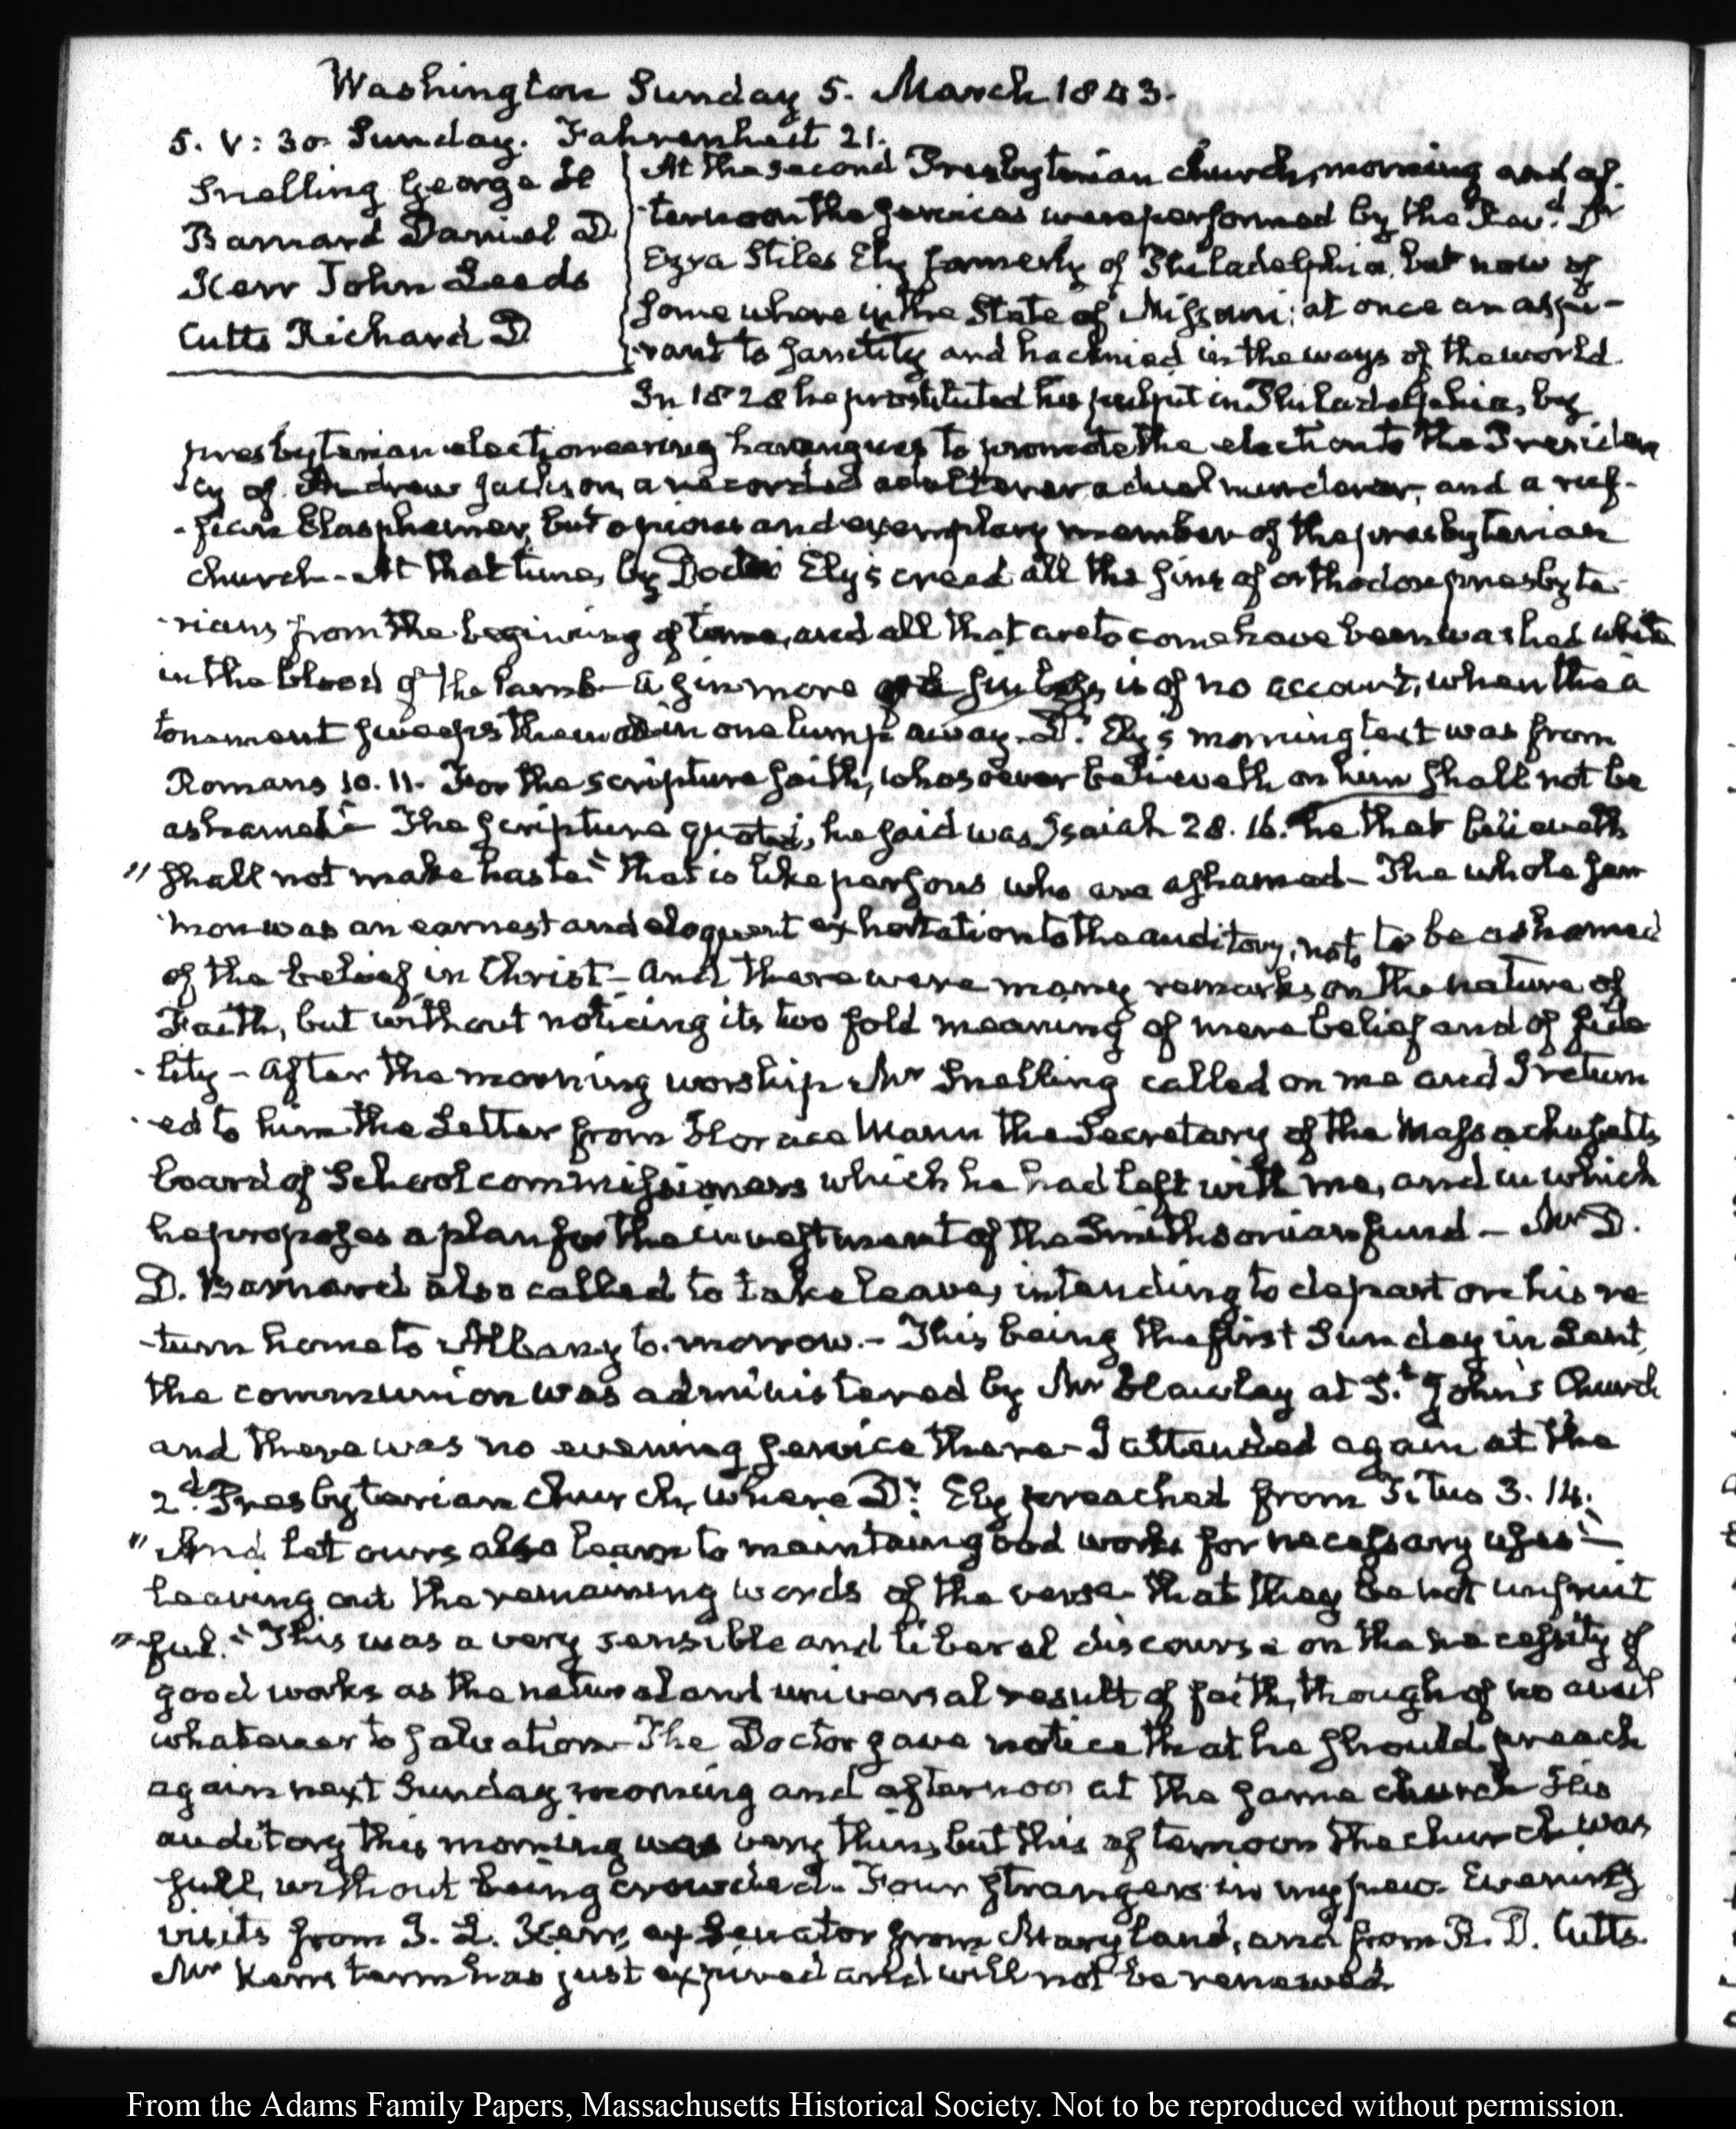 Washington Sunday 5. March 1843.
5. V: 30. Sunday. Fahrenheit 21.
Snelling George H
Barnard Daniel D
Kerr John Leeds
Cutts Richard D
At the second Presbyterian church, morning and af-
ternoon the services were performed by the Revd. Dr
Ezra Stiles Ely formerly of Philadelphia, but now of
some where in the State of Missouri; at once an aspi-
rant to sanctity and hacknied in the ways of the world.
In 1828 he prostituted his pulpit in Philadelphia, by
presbyterian electioneering harangues to promote the election to the Presiden
-cy of Andrew Jackson, a recorded adulterer a duel murderer, and a ruf-
-fian blasphemer, but a pious and exemplary member of the presbyterian
church - At that time, by Doctor Ely's creed all the sins of orthodox presbyte
-rians from the beginning of time, and all that are to come have been washed white
in the blood of the lamb - a sin more or a sin less, is of no account, when the a
tonement sweeps them all in one lump away. Dr. Ely's morning text was from
Romans 10. 11. For the scripture saith, whosoever believeth on him shall not be
ashamed" - The scripture quoted, he said was Isaiah 28. 16. he that believeth
"shall not make haste" that is like persons who are ashamed - The whole ser
mon was an earnest and eloquent exhortation to the auditory, not to be ashamed
of the belief in Christ - and there were many remarks on the nature of
Faith, but without noticing its two fold meaning of mere belief and of fide
-lity - After the morning worship Mr Snelling called on me and I return
-ed to him the Letter from Horace Mann the Secretary of the Massachusetts
board of School commissioners which he had left with me, and in which
he proposes a plan for the investment of the Smithsonian fund - Mr D.
D. Barnard also called to take leave, intending to depart on his re
-turn home to Albany to-morrow. - This being the first Sunday in Lent,
the communion was administered by Mr Hawley at St. John's Church
and there was no evening service there - I attended again at the
2d. Presbyterian church, where Dr. Ely preached from Titus 3. 14.
"And let ours also learn to maintain good works for necessary uses" -
leaving out the remaining words of the verse - that they be not unfruit
"ful." This was a very sensible and liberal discourse on the necessity of
good works as the natural and universal result of faith, though of no avail
whatever to salvation - The Doctor gave notice that he should preach
again next Sunday morning and afternoon at the same church His
auditory this morning was very thin, but this afternoon the church was
full, without being crowded. Four strangers in my pew. Evening
visits from J. L. Kerr, ex Senator from Maryland, and from R. D. Cutts.
Mr Kerrs term has just expired and will not be renewed
From the Adams Family Papers, Massachusetts Historical Society. Not to be reproduced without permission.